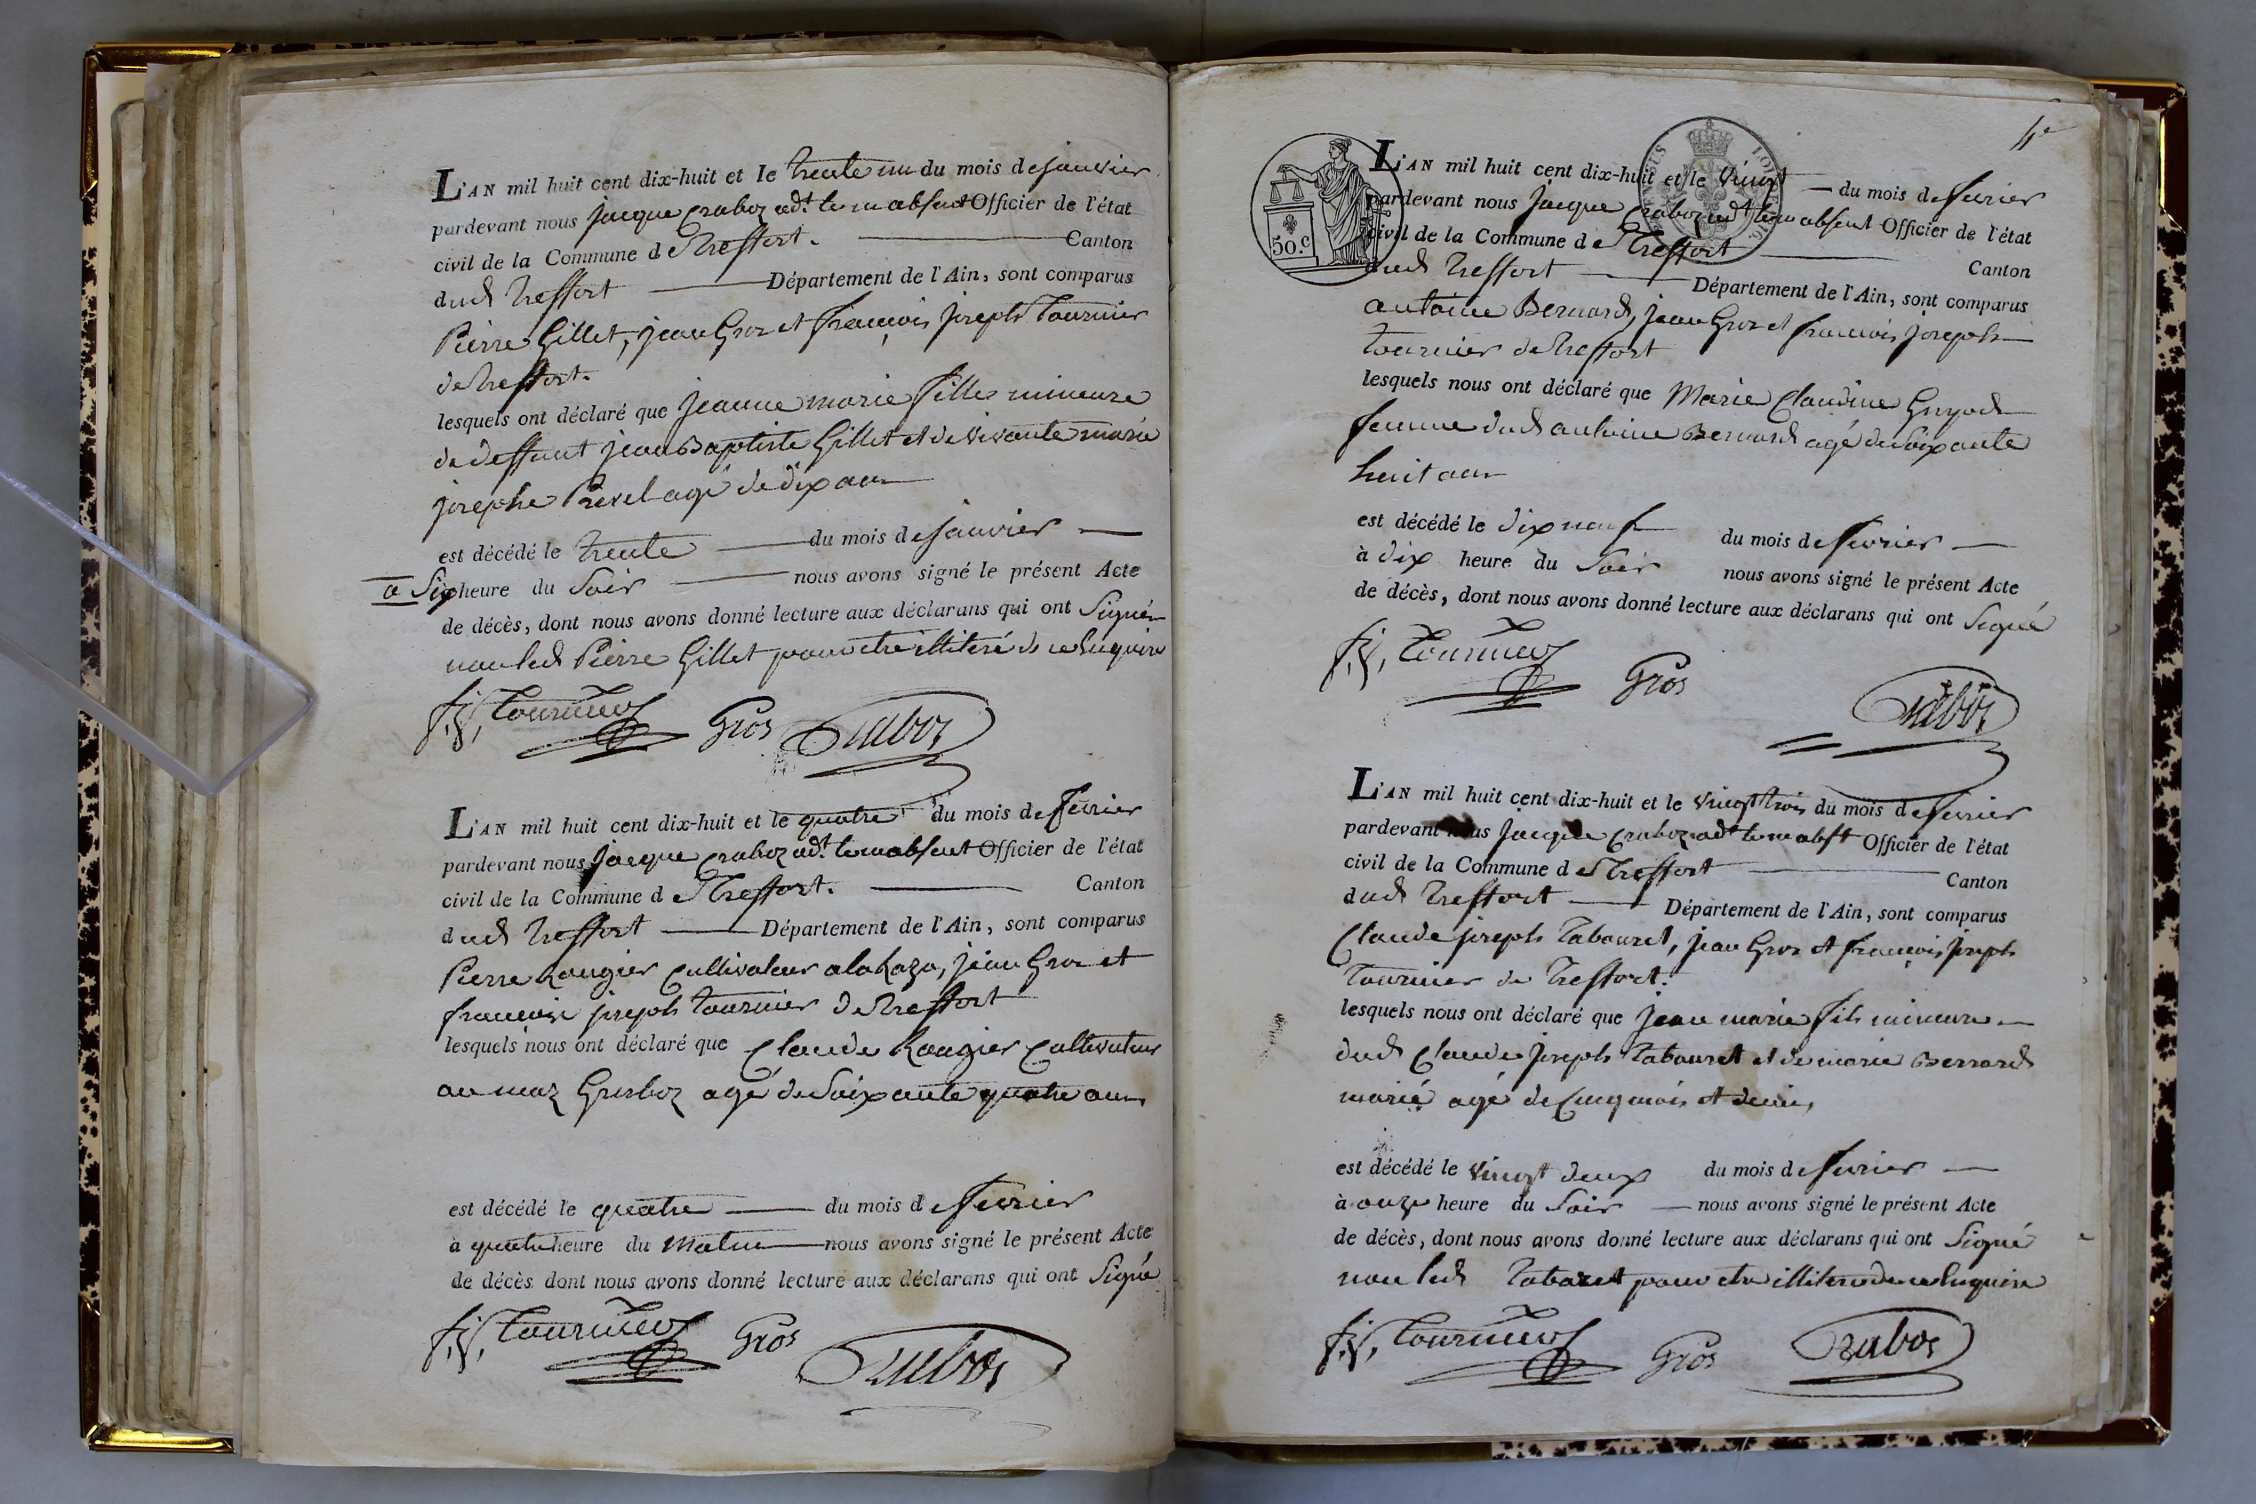 L'AN mil huit cent dix-huit et le trente un du mois de janvier
pardevant nous jacque Craboz adt le m absent Officier de l'état
civil de la Commune de Treffort. Canton
dud Treffort Département de l'Ain, sont comparus
Pierre Gillet, jean Gros et françois joseph Tournier
de Treffort.
lesquels ont déclaré que jeanne marie fille mineure
de deffunt jean Baptiste Gillet et de vivante marie
josephe Revel agé de dix ans
est décédé le trente du mois de janvier
a Six heure du Soir nous avons signé le présent Acte
de décès, dont nous avons donné lecture aux déclarans qui ont Signé
non led Pierre Gillet pour etre illiteré de ce Enquire
f. j. Tournier Gros Crabos
L'AN mil huit cent dix-huit et le quatre du mois de fevrier
pardevant nous jacque Craboz adt le m absent Officier de l'état
civil de la Commune de Treffort. Canton
dud Treffort Département de l'Ain, sont comparus
Pierre Rougier Cultivateur a la Raza, jean Gros et
francois joseph Tournier de Treffort
lesquels nous ont déclaré que Claude Rougier Cultivateur
au maz Grisboz agé de Soixante quatre ans
est décédé le quatre du mois de fevrier
à quatre heure du Matin nous avons signé le présent Acte
de décès dont nous avons donné lecture aux déclarans qui ont Signé
f. j. Tournier Gros Crabos
4e
50.c
L'AN mil huit cent dix-huit et le vingt du mois de fevrier
pardevant nous jacque Craboz adt le m absent Officier de l'état
civil de la Commune de Treffort Canton
dud Treffort Département de l'Ain, sont comparus
antoine Bernard, jean Gros et francois joseph
Tournier de Treffort
lesquels nous ont déclaré que Marie Claudine Guyod
femme dud antoine Bernard agé de Soixante
huit ans
est décédé le dix neuf du mois de fevrier
à dix heure du Soir nous avons signé le présent Acte
de décès, dont nous avons donné lecture aux déclarans qui ont Signé
f. j. Tournier Gros Crabos
L'AN mil huit cent dix-huit et le vingt trois du mois de fevrier
pardevant nous jacque Craboz adt le m abst Officier de l'état
civil de la Commune de Treffort Canton
dud Treffort Département de l'Ain, sont comparus
Claude joseph Tabouret, jean Gros et françois joseph
Tournier de Treffort.
lesquels nous ont déclaré que jean marie fils mineure
dud Claude joseph Tabouret et de marie Bernard
marié agé de Cinq mois et demi,
est décédé le vingt deux du mois de fevrier
à onze heure du Soir nous avons signé le présent Acte
de décès, dont nous avons donné lecture aux déclarans qui ont Signé
non led Tabouret pour etre illiteré de ce Enquire
f. j. Tournier Gros Crabos